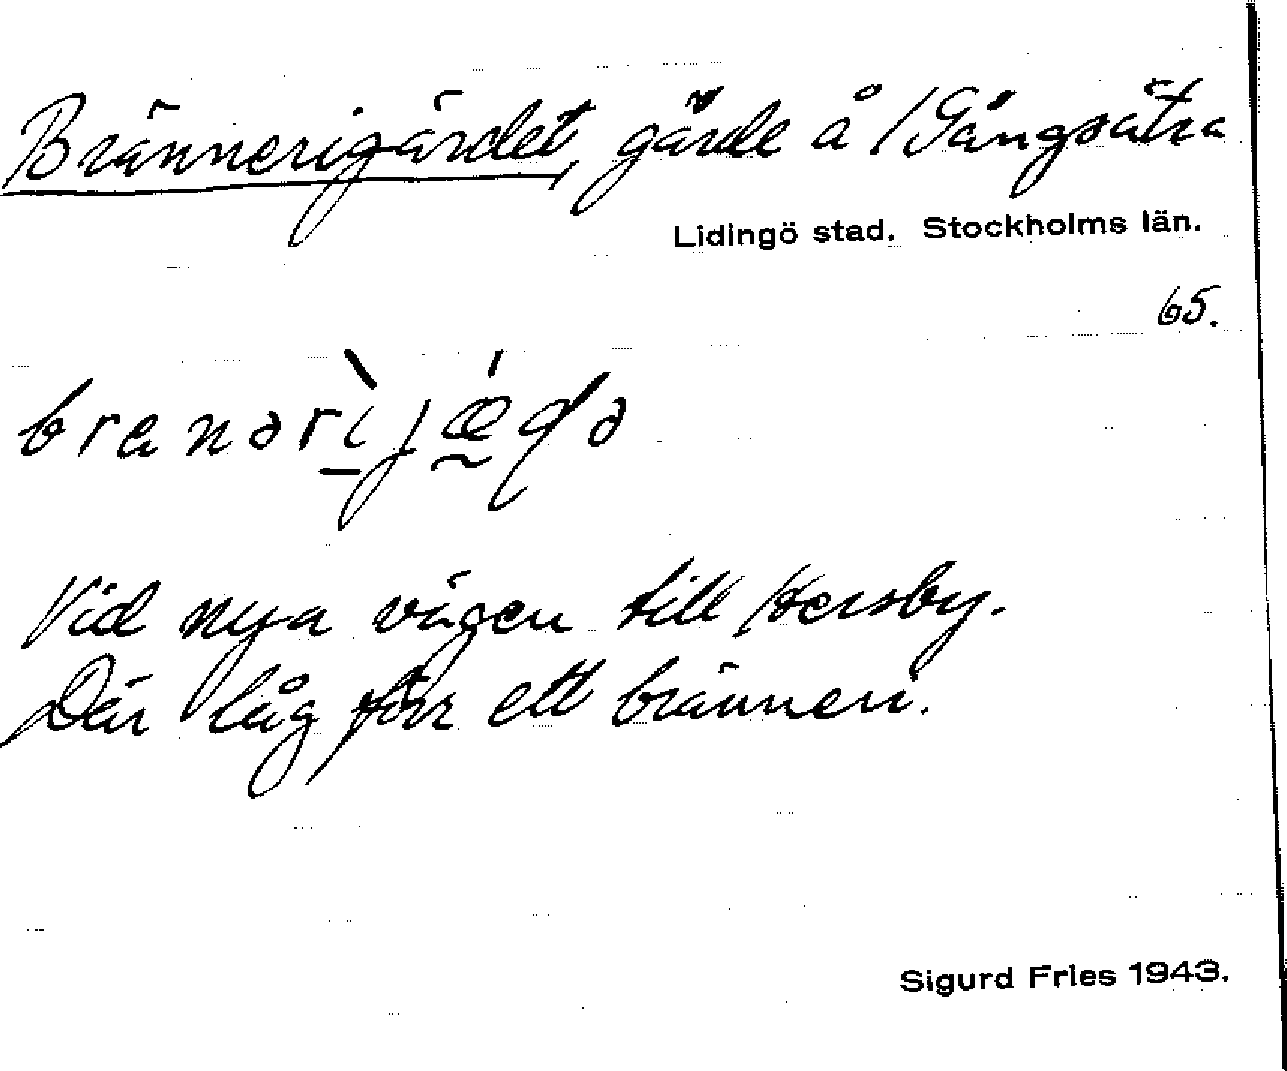 Brännerigärdet, gärde å /Gångsätra
Lidingö stad. Stockholms län.
65.
branərìjǽɖə
Vid nya vägen till Hersby.
Där låg förr ett bränneri.
Sigurd Fries 1943.